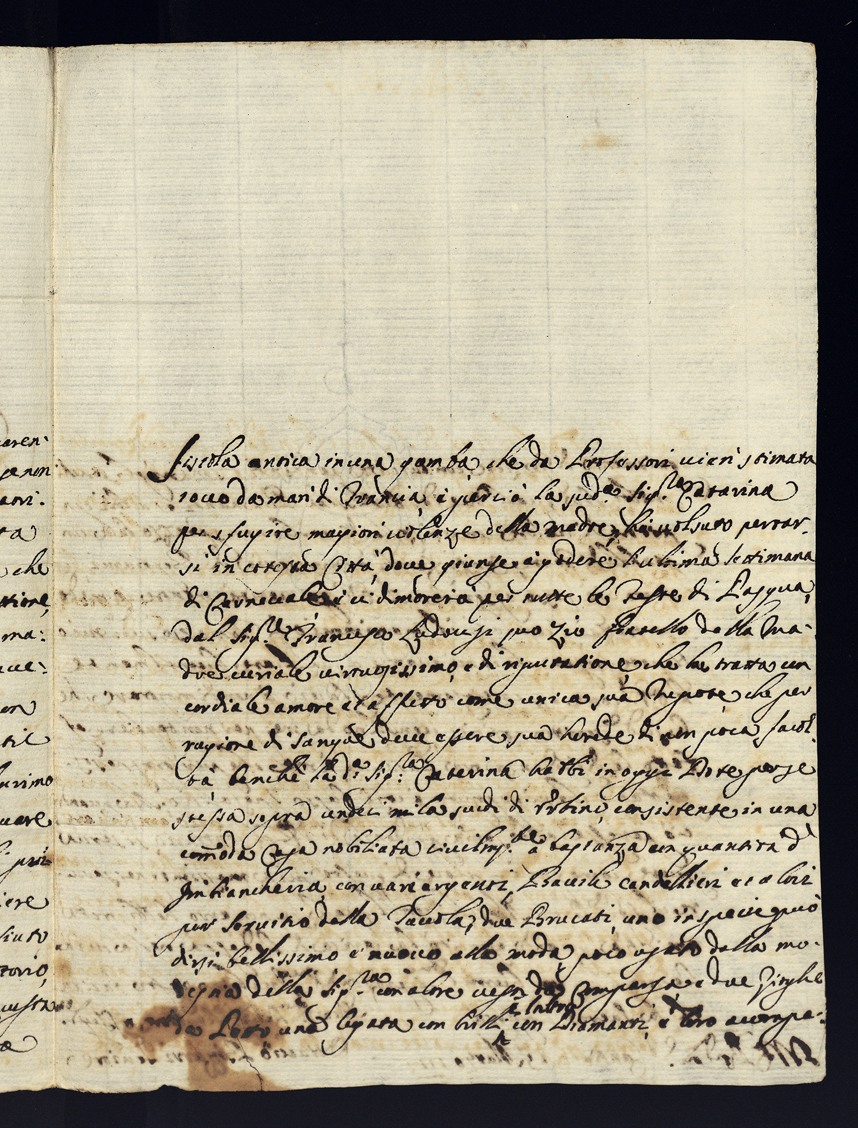 aren:
fistola antica in una gamba che da Professori vien stimata
se non
tocco da mari di Francia, e perciò la sud.a Sig.ra Catarina
per sfugire magiori violenze della madre, hà volsuto portar-
ta
si in cotesta Città, dove giunse a godere l'ultima settimana
che
di Carnevale, e vi dimorerà per tutte le Feste di Pasqua,
tione,
dal Sig.re Francesco Ludovisi suo Zio fratello della Ma-
ma:
dre curiale virtuosissimo, e di riputatione, che la tratta con
cordiale amore et affetto come unica sua Nepote, che per
ragione di sangue deve essere sua herede di non poca facol-
til
tà, benche la d.a Sig.ra Caterina habbi in oggi Dote per se
stessa sopra undeci mila scudi di Urbini, consistente in una
comoda Casa nobiliata civilm.te à bastanza con quantità d'
Imbiancheria, con varii argenti, Bacile candellieri et altri
per servitio della Tavola, due Brucati, uno in specie può
dirsi bellissimo e nuovo alla moda poco usato dalla mo-
destia della Sig.ra con altre vesti da Comparsa e due Zirghe
da Letto, una legata con brilli con Diamanti, e loro accompa-